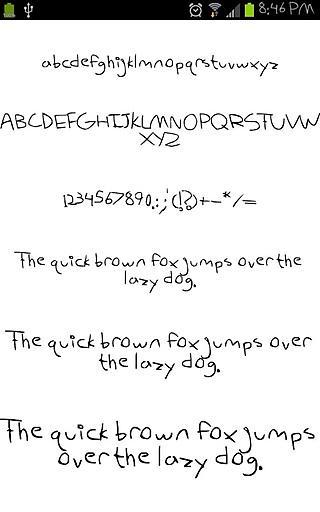 8:46 PM
abcdefghijklmnopqrstuvwxyz
ABCDEFGHIJKLMNOPQRSTUVW
XYZ
1234567890.:,;'(!?)+-*/=
The quick brown fox jumps over the
lazy dog.
The quick brown fox jumps over
the lazy dog.
The quick brown fox jumps
over the lazy dog.